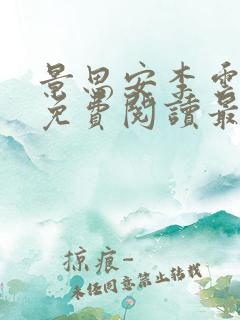 景思安李雪
免費閱讀最
掠痕-
未经同意禁止转载